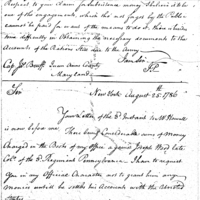 Respect to your Claim for Subsistence money
of our engagements, which the act
cannot be paid for want of the means to do it, there is also
some difficulty in Obtaining the necessary documents to the
Accounts of the Rations due to the Army.
I am Sir
Queen Anns County
Maryland
Sir
New York August 25th 1786
Your Letter of the 3d Instant to Mr Howell
is now before me. There being Considerable sums of money
Charged in the Books of my office against Joseph Wood late
Colo of the 3d Regiment Pennsylvania. I have to request
You in my Official Character not to grant him any
monies untill he settles his Accounts with the United
States